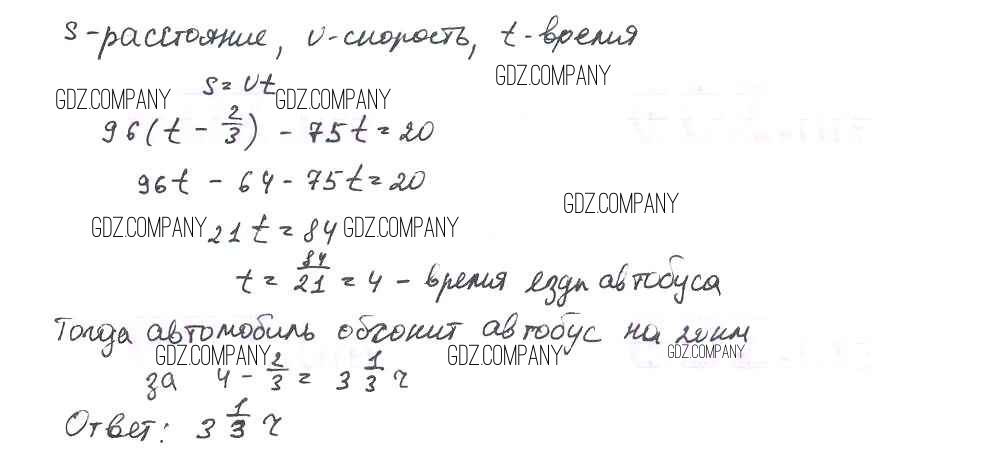 S-расстояние, υ-скорость, t-время
GDZ.COMPANY
S = υt
GDZ.COMPANY GDZ.COMPANY
96(t - 2/3) - 75t = 20
96t - 64 - 75t = 20
GDZ.COMPANY
GDZ.COMPANY 21t = 84 GDZ.COMPANY
t = 84/21 = 4 - время езды автобуса
Тогда автомобиль обгонит автобус на 20 км
GDZ.COMPANY GDZ.COMPANY GDZ.COMPANY
за 4 - 2/3 = 3 1/3 ч
Ответ: 3 1/3 ч